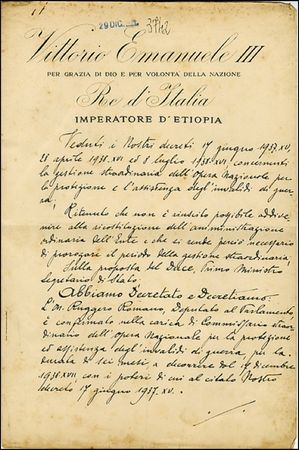 29 DIC.
3742
Vittorio Emanuele III
PER GRAZIA DI DIO E PER VOLONTÀ DELLA NAZIONE
Re d'Italia
IMPERATORE D'ETIOPIA
Veduti i Nostri decreti 17 giugno 1937.XV,
28 aprile 1938.XVI ed 8 luglio 1938.XVI, concernenti
la gestione straordinaria dell'Opera Nazionale per
la protezione e l'assistenza degli invalidi di guer-
ra;
Ritenuto che non è possibile addive-
nire alla ricostituzione dell'amministrazione
ordinaria dell'Ente e che si rende perciò necessario
di prorogare il periodo della gestione straordinaria;
Sulla proposta del Duce, Primo Ministro
Segretario di Stato;
Abbiamo Decretato e Decretiamo:
L'On. Ruggero Romano, Deputato al Parlamento
è confermato nella carica di Commissario straor-
dinario dell'Opera Nazionale per la protezione
ed assistenza degl'invalidi di guerra, per la
durata di sei mesi, a decorrere dal 17 dicembre
1938.XVII con i poteri di cui al citato Nostro
decreto 17 giugno 1937.XV.